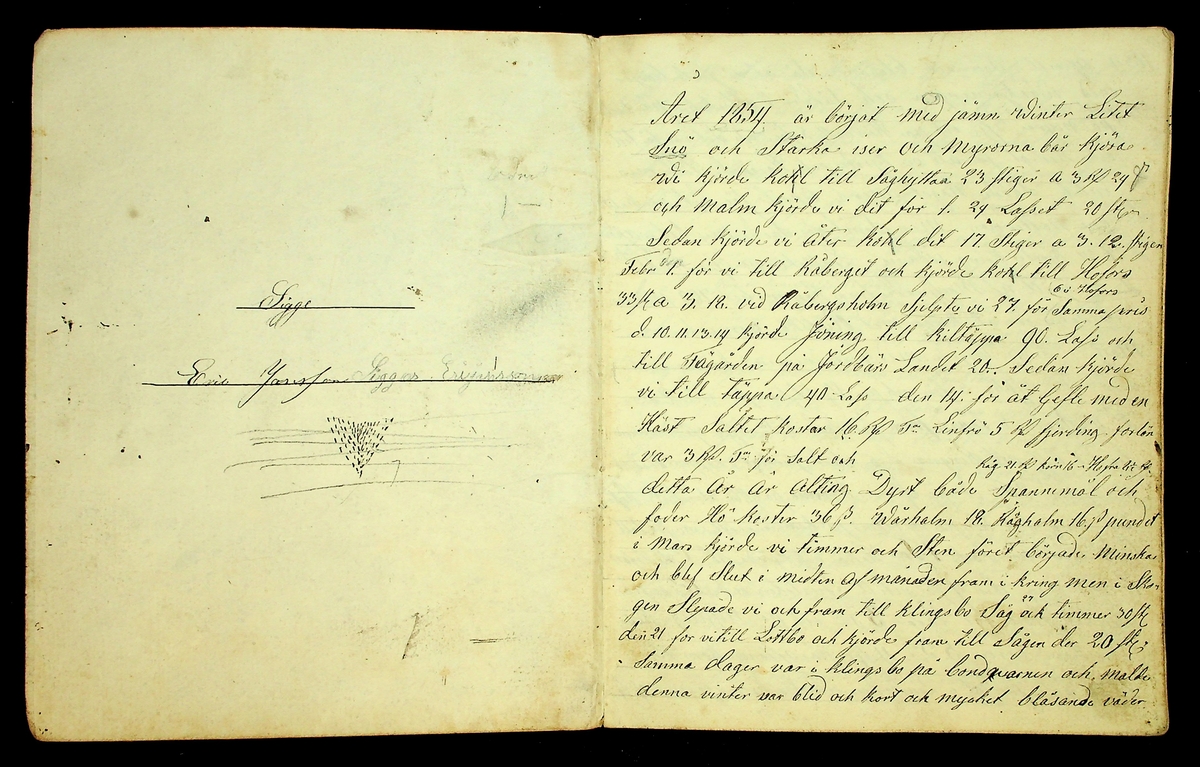 Sigge
Eric Jansson Sigges
Året 1854 är börjat med jämn winter Litet
Snö och Stärka iser och Myrorna bär kjöra
Wi kjörde kohl till Såghyttan 23 stiger a 3 24
och Malm kjörde vi dit för 1. 24 Lasset 20 st
Sedan kjörde vi åter kohl dit 17 Stiger a 3. 12. stigen
Febr 1. för vi till Råberget och kjörde kohl till Hofors
till Hofors
33 st a 3. 18. vid Råbergsholn vi 27. för Samma pris
d. 10. 11. 13. 14 kjörde till kiltäppa 90. Lass och
till Fägården på Jordbärs Landet 20.. Sedan kjörde
vi till täppa 40 Lass den 14. för åt Gefle med en
Häst Saltet kostar 16 Linfrö 5 fjerding
var 3 för Salt och
Råg 21
detta År Är Alting Dyrt både Spannemål och
foder Hö koster 36 Wårhalm 18. Råghalm 16 pundet
i Mars kjörde vi timmer och Sten föret började Minska
och blef Slut i midten af månaden fram i kring men i Sko-
gen Slepade vi och fram till klingsbo Såg och timmer 30 st
den 21 för vi till Lottbo och kjörde fram till Sågen der 20 st
Samma dager var i klingsbo på bondqvarnen och malde
denna vinter var blid och kort och mycket blåsande väder